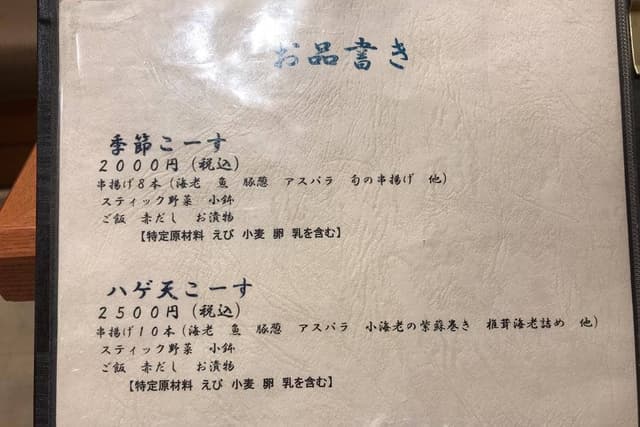 お品書き
季節こーす
2000円(税込)
串揚げ8本(海老 魚 豚葱 アスパラ 旬の串揚げ 他)
スティック野菜 小鉢
ご飯 赤だし お漬物
【特定原材料 えび 小麦 卵 乳を含む】
ハゲ天こーす
2500円(税込)
串揚げ10本(海老 魚 豚葱 アスパラ 小海老の紫蘇巻き 椎茸海老詰め 他)
スティック野菜 小鉢
ご飯 赤だし お漬物
【特定原材料 えび 小麦 卵 乳を含む】